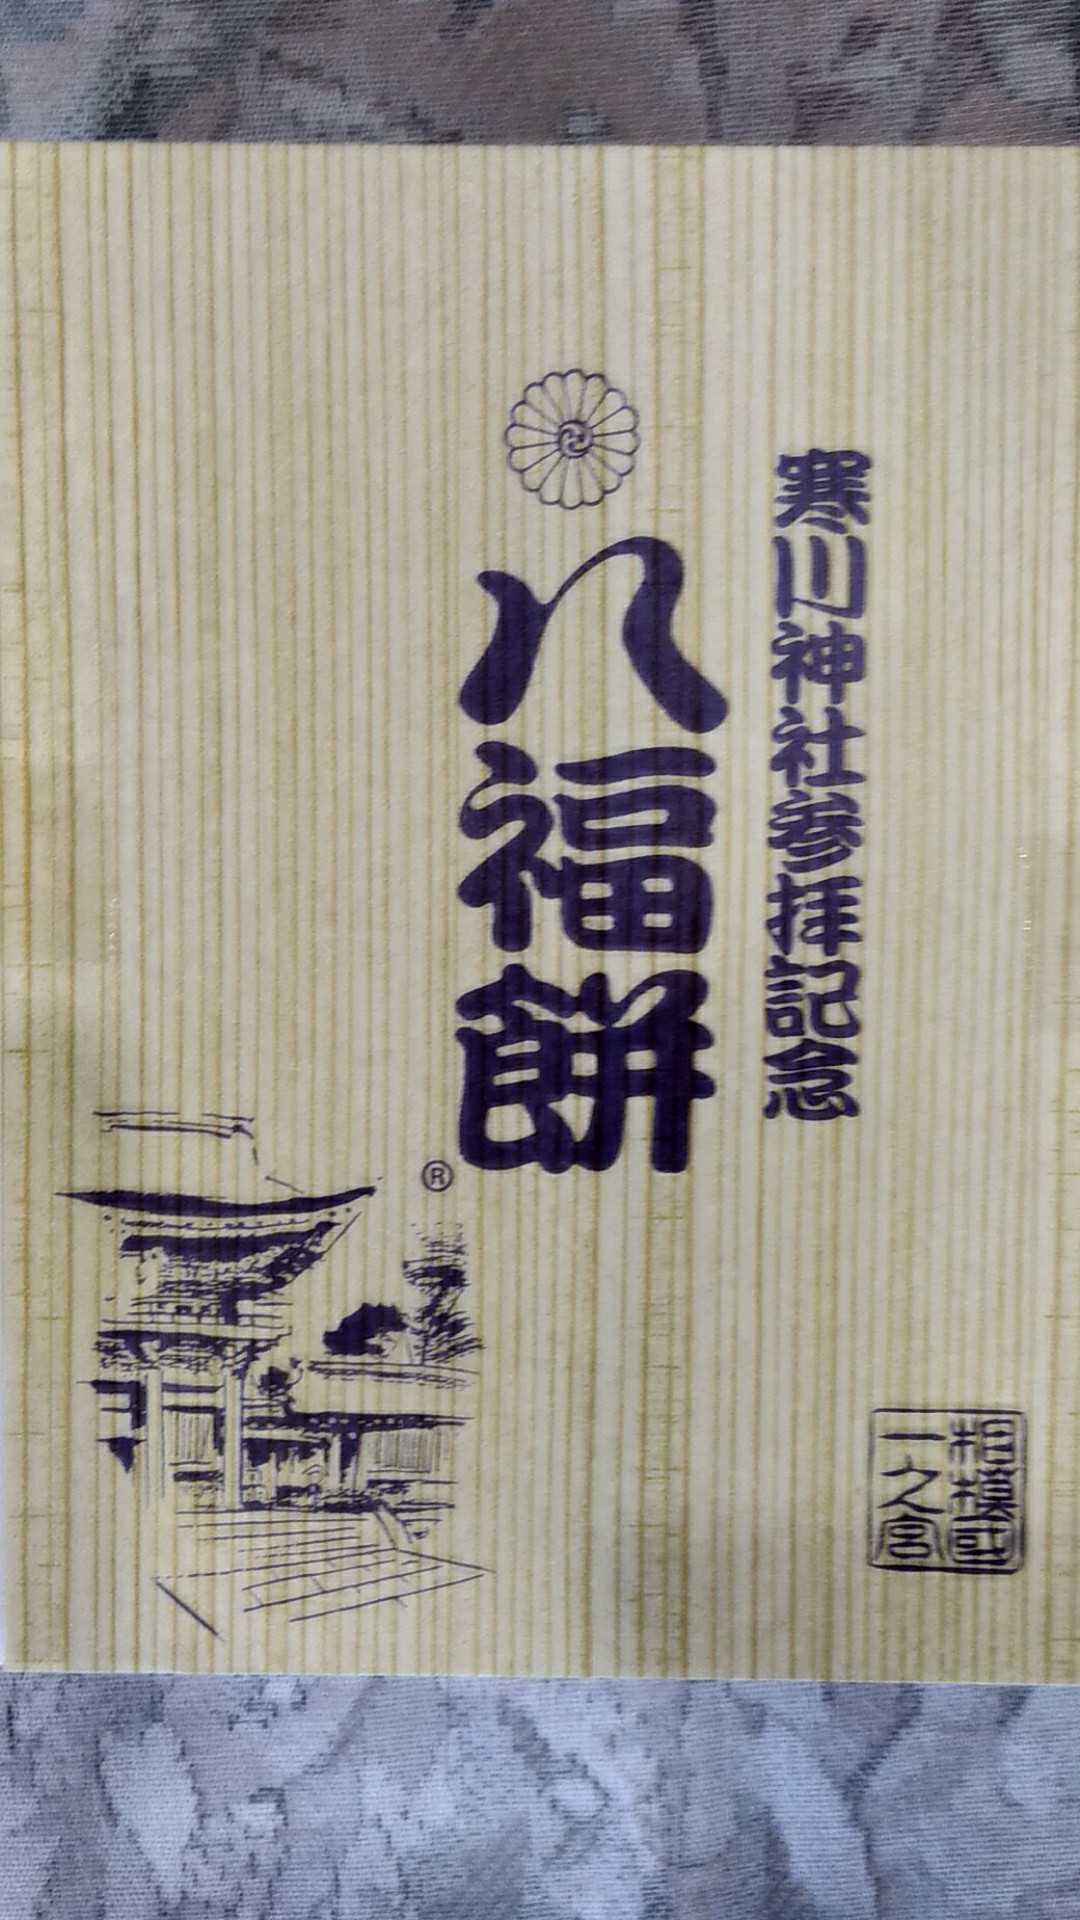 寒川神社参拝記念
八福餅
®
相模國
一之宮